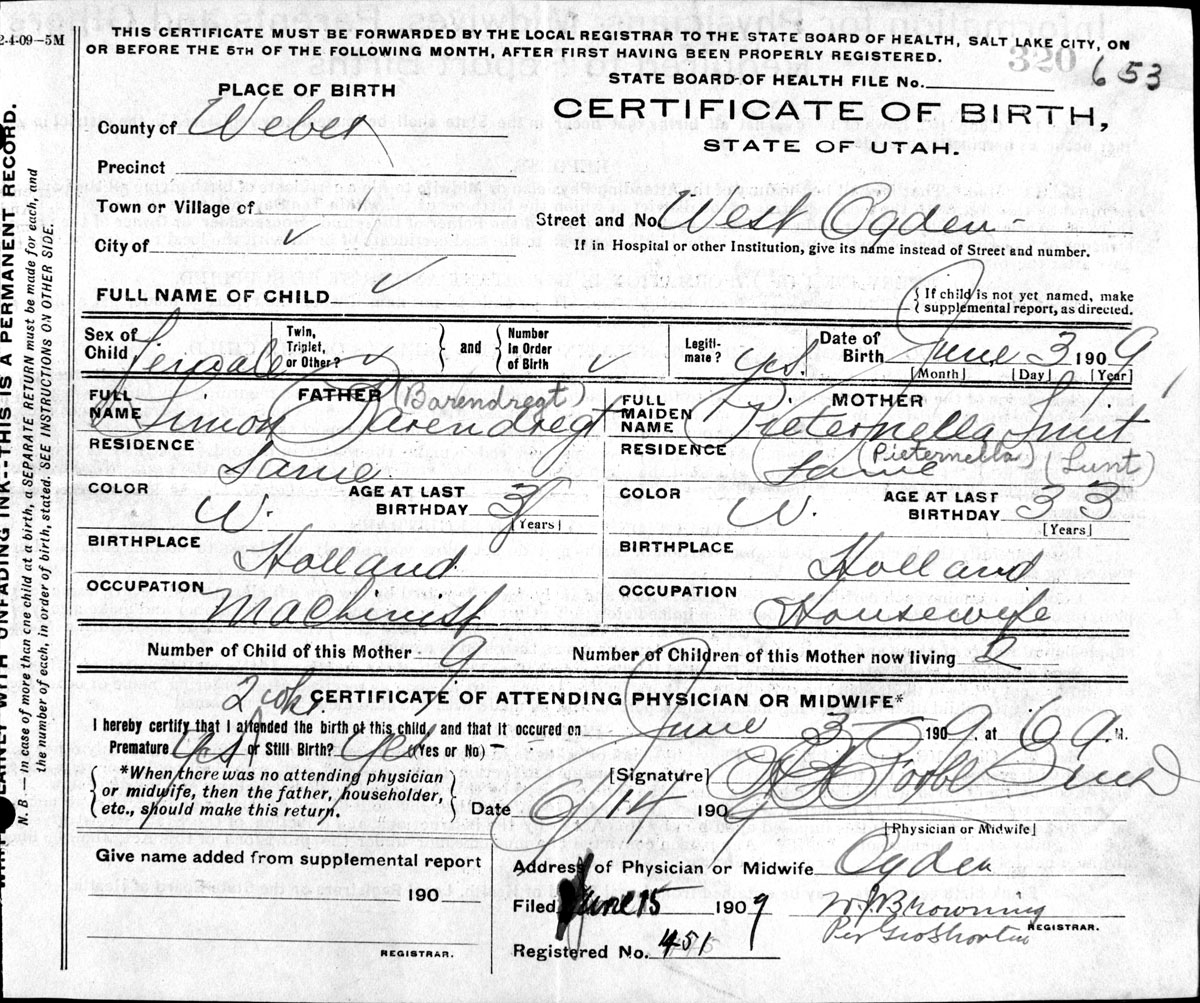 2-4-09–5M
THIS CERTIFICATE MUST BE FORWARDED BY THE LOCAL REGISTRAR TO THE STATE BOARD OF HEALTH, SALT LAKE CITY, ON
OR BEFORE THE 5TH OF THE FOLLOWING MONTH, AFTER FIRST HAVING BEEN PROPERLY REGISTERED.
320
653
STATE BOARD OF HEALTH FILE No.
PLACE OF BIRTH
CERTIFICATE OF BIRTH,
STATE OF UTAH.
County of Weber
Precinct
Town or Village of ✓
Street and No. West Ogden
City of ✓
If in Hospital or other Institution, give its name instead of Street and number.
FULL NAME OF CHILD ✓
{ If child is not yet named, make
supplemental report, as directed.
Sex of Child Female
Twin, Triplet, or Other? ✓ } and { Number In Order of Birth ✓
Legitimate? Yes.
Date of Birth June 3 1909
[Month] [Day] [Year]
FATHER (Barendregt)
FULL NAME Simon Barendregt
RESIDENCE Same
COLOR W.
AGE AT LAST BIRTHDAY
[Years]
BIRTHPLACE Holland
OCCUPATION Machinist
MOTHER
FULL MAIDEN NAME Pieternella Smit
RESIDENCE Same (Pieternella)
COLOR W.
AGE AT LAST BIRTHDAY 33
[Years]
BIRTHPLACE Holland
OCCUPATION Housewife
Number of Child of this Mother 9
Number of Children of this Mother now living 2
CERTIFICATE OF ATTENDING PHYSICIAN OR MIDWIFE*
I hereby certify that I attended the birth of this child, and that it occured on June 3 1909, at 6 A. M.
Premature Yes or Still Birth? (Yes or No) –
{ *When there was no attending physician
or midwife, then the father, householder,
etc., should make this return. }
[Signature]
Date 6/14 1909
[Physician or Midwife]
Give name added from supplemental report
190
REGISTRAR.
Address of Physician or Midwife Ogden
Filed June 15 1909
W J Browning
REGISTRAR.
Per Geo Shorten
Registered No. 451
WITH UNFADING INK--THIS IS A PERMANENT RECORD.
N. B. — in case of more than one child at a birth, a SEPARATE RETURN must be made for each, and
the number of each, in order of birth, stated. SEE INSTRUCTIONS ON OTHER SIDE.